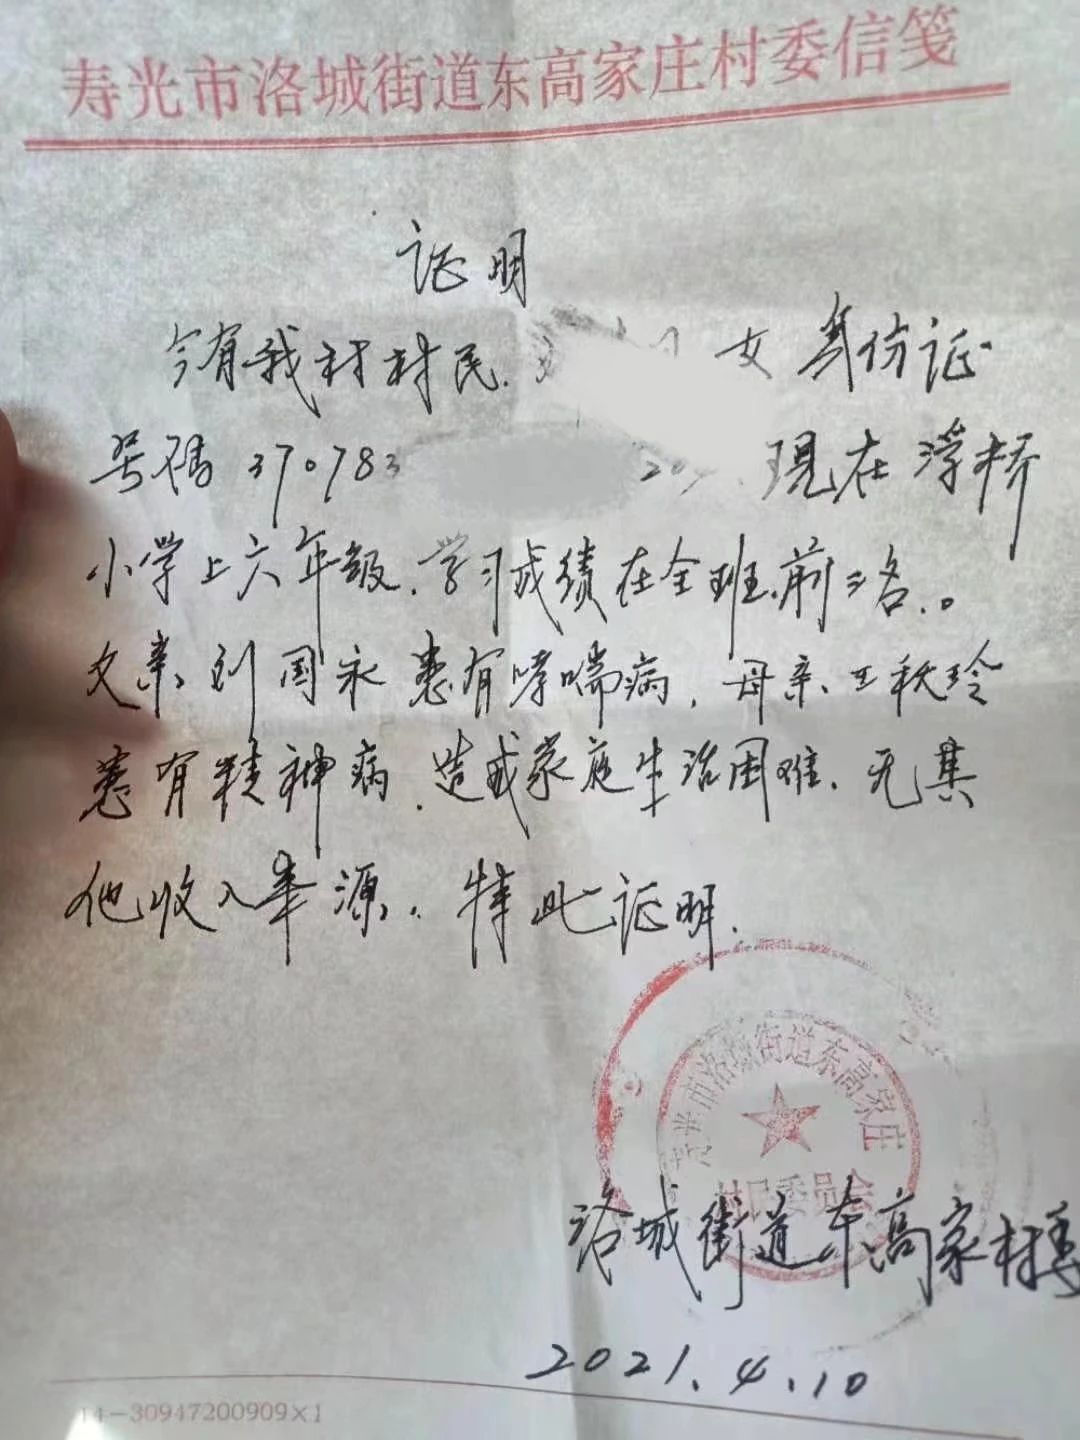 寿光市洛城街道东高家庄村委信笺
证明
今有我村村民. 女 身份证
号码 370783 现在浮桥
小学上六年级.学习成绩在全班前三名.。
父亲刘国永患有哮喘病,母亲王秋玲
患有精神病.造成家庭生活困难.无其
他收入来源.特此证明.
寿光市洛城街道东高家庄
村民委员会
洛城街道东高家村委
2021.4.10
14-30947200909×1